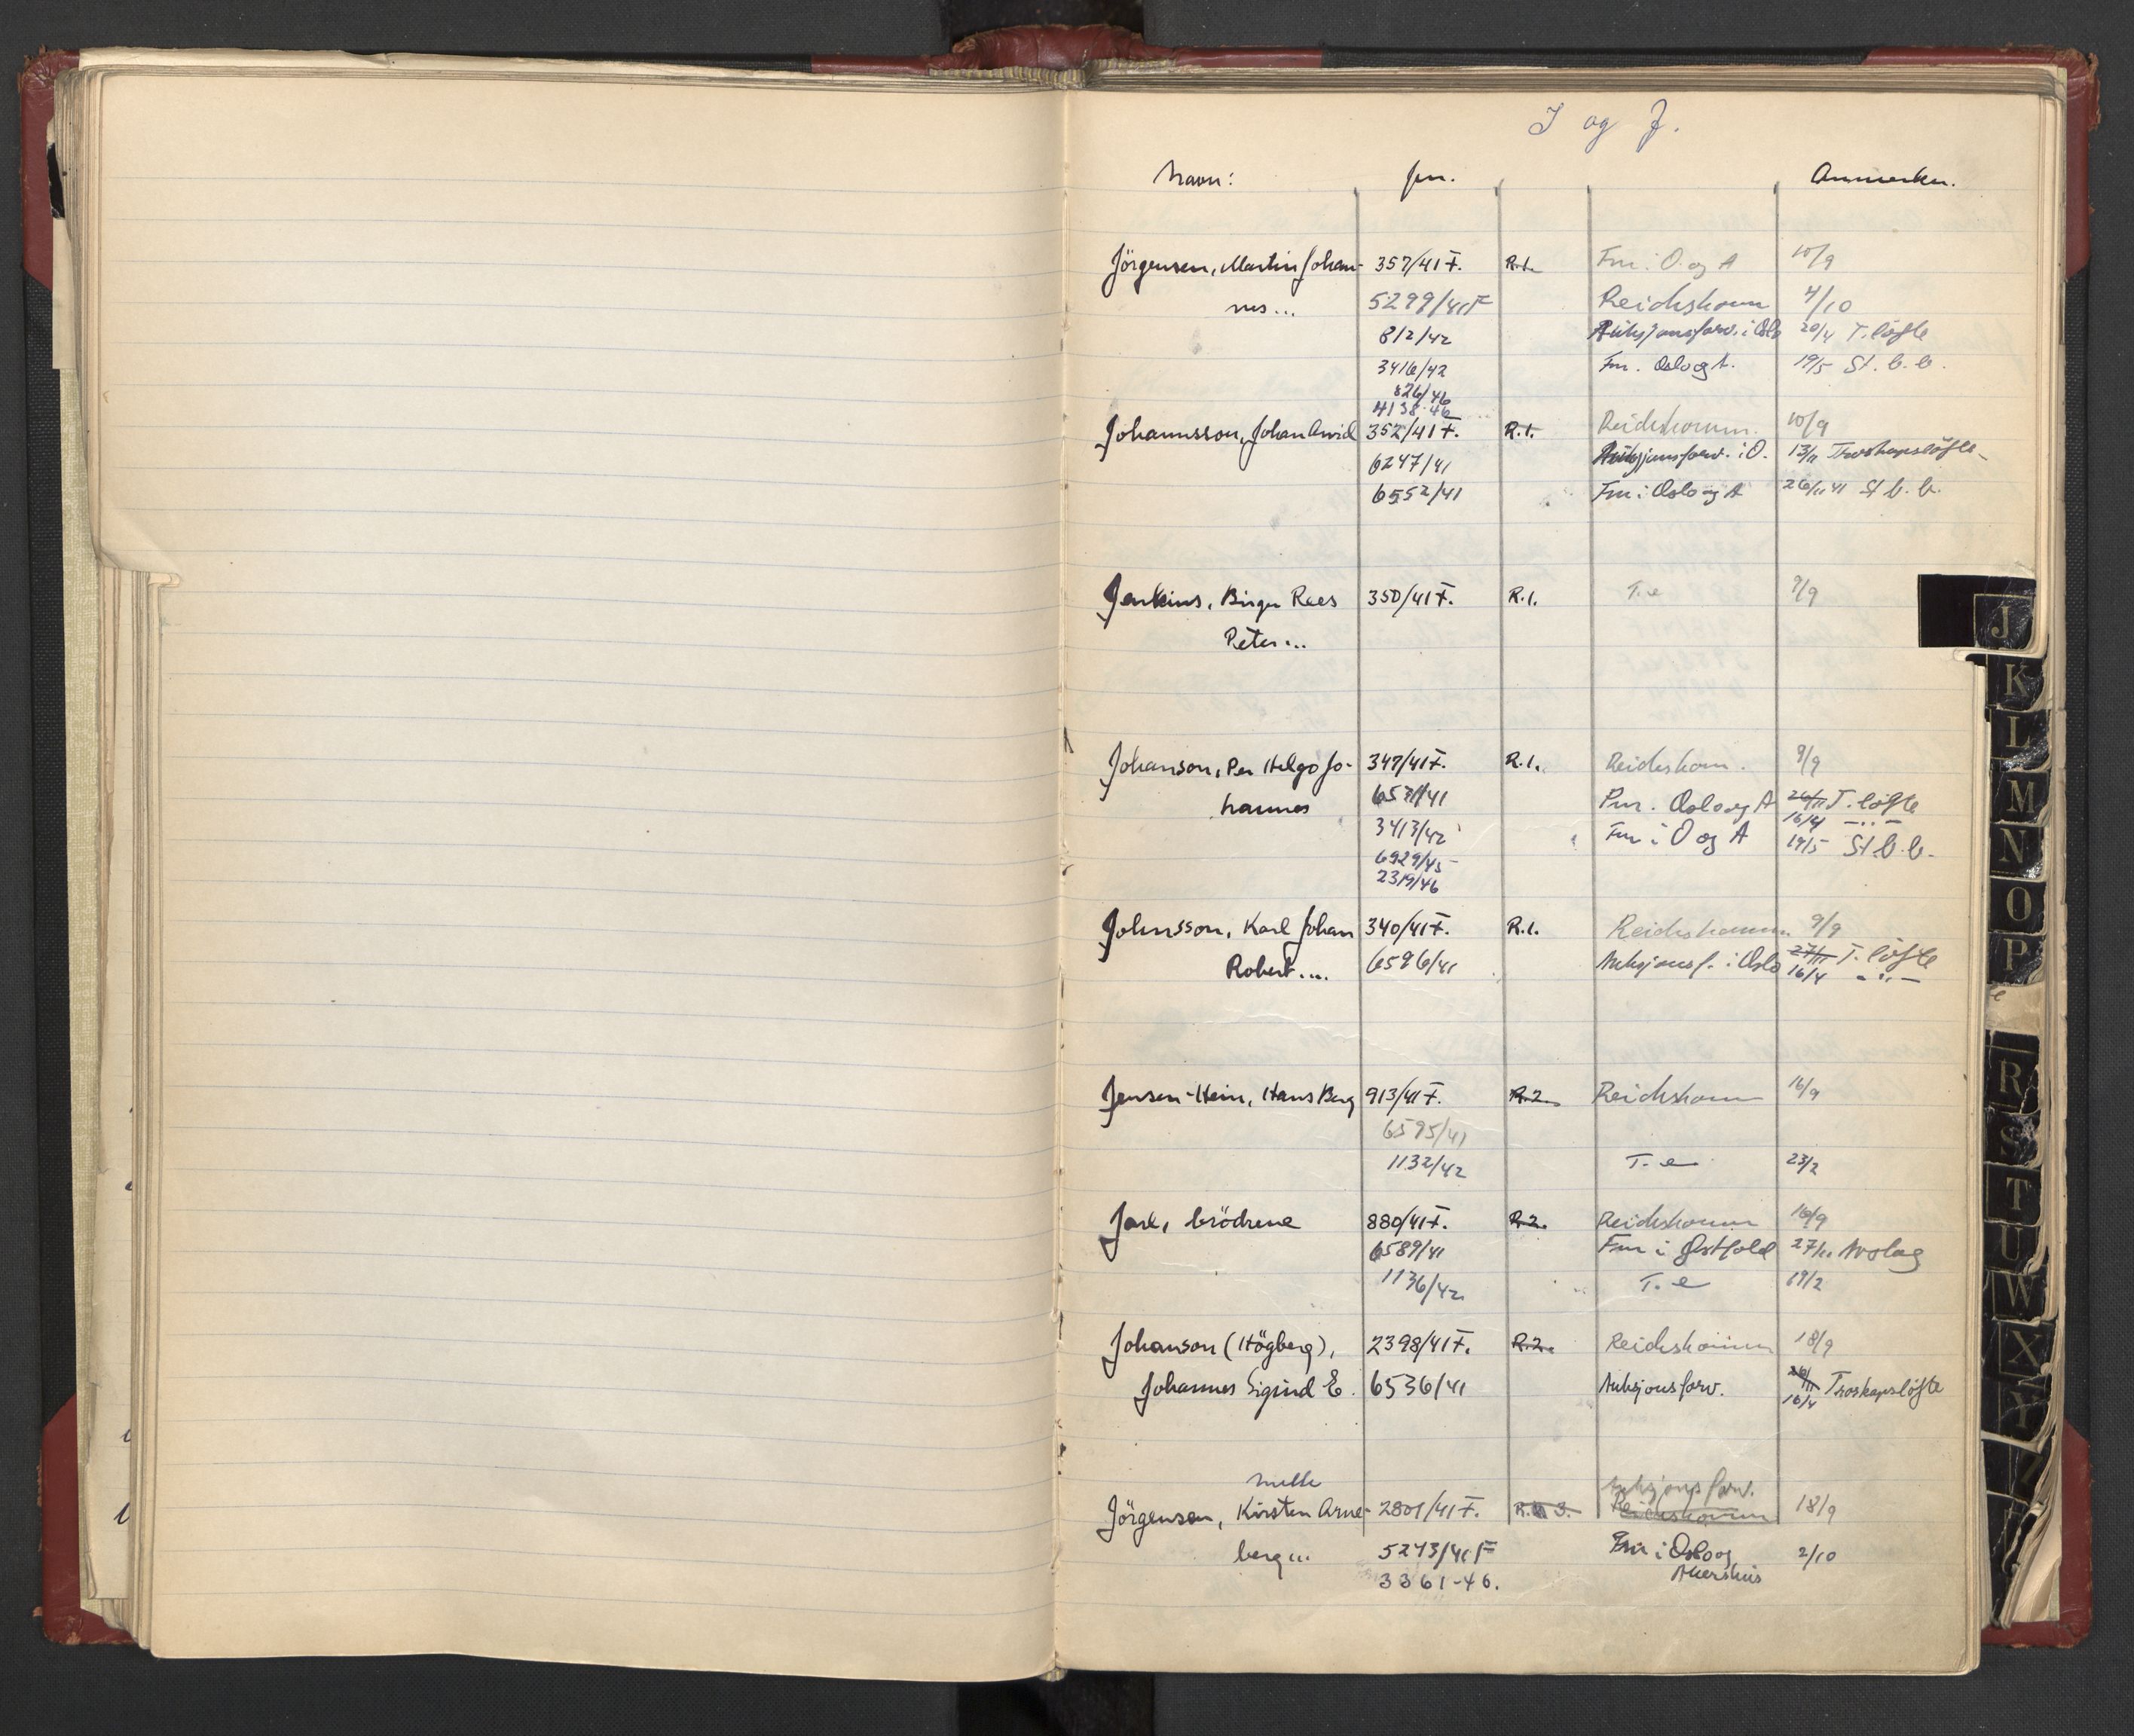 I og J.
Navn: jnr. Anmerkn.
Jörgensen, Martin Johan- 357/41 F. R.1. Fm. i O. og A 10/9
nes... 5299/41 F Reichskomm 4/10
812/42 Auksjonsforv. i Oslo 20/4 T. löfte
3416/42 Fm. Oslo og A. 19/5 St. b. b.
826/46
4138-46
Johannsson, Johan Arvid 352/41 F. R.1. Reichskomm. 10/9
6247/41 Auksjonsforv. i O. 13/11 Troskapslöfte
6552/41 Fm i Oslo og A 26/11 41 St b. b.
Jenkins, Birger Rees 350/41 F. R.1. T. e 9/9
Peter...
Johanson, Per Helgo Jo- 347/41 F. R.1. Reichskom. 9/9
hannes 6531/41 Fm. Oslo og A 26/11 T. löfte
16/4 -"-
3413/42 Fm i O og A 19/5 St. b. b.
6929/45
2319/46
Johnsson, Karl Johan 340/41 F. R.1. Reichskomm. 9/9
Robert... 6596/41 Auksjonsf. i Oslo 27/11 T. löfte
16/4 -"-
Jensen-Hein, Hans Berg 913/41 F. R.2. Reichskomm 16/9
6595/41
1132/42 T. e 23/2
Jarl, brödrene 880/41 F. R.2. Reichskomm 16/9
6589/41 Fm i Østfold 27/11 Avslag
1136/42 T. e 19/2
Johanson (Högberg), 2398/41 F. R.2. Reichskomm 18/9
Johannes Sigurd E. 6536/41 Auksjonsforv. 26/11 Troskapslöfte
16/4
Auksjonsforv.
Jörgensen, Kirsten Arne- 2801/41 F. R. 3. Reichskomm 18/9
berg... 5273/41 F Fm i Oslo og 2/10
Akershus
3361-46.
J
K
L
M
N
O
P
R
S
T
U
W
X
Y